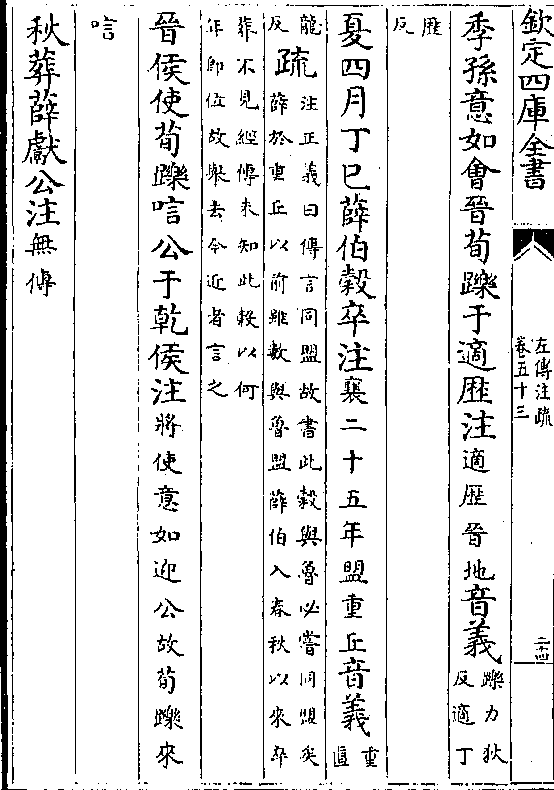 欽定四庫全書
左傳注疏
卷五十三
二十四
季孫意如會晉荀躒于適歴注適歴晉地音義躒力狄
反適丁
歴
反
夏四月丁巳薛伯穀卒注襄二十五年盟重丘音義重
直
龍
反
疏注正義曰傳言同盟故書此穀與魯必嘗同盟矣
薛於重丘以前雖數與魯盟薛伯入春秋以來卒
葬不見經傳未知此穀以何
年即位故舉去今近者言之
晉侯使荀躒唁公于乾侯注將使意如迎公故荀躒來
唁
秋葬薛獻公注無傳